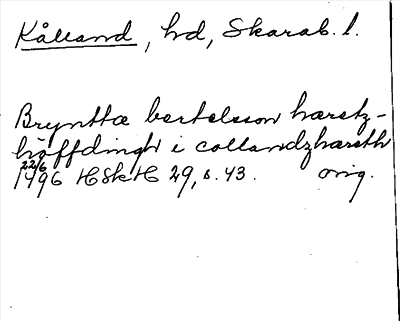 Kålland, hd, Skarab. l.
Brynttæ bertelsson haretz-
höffdingh i collandzhæreth
22/6
1496 HSkH 29, s. 43. orig.